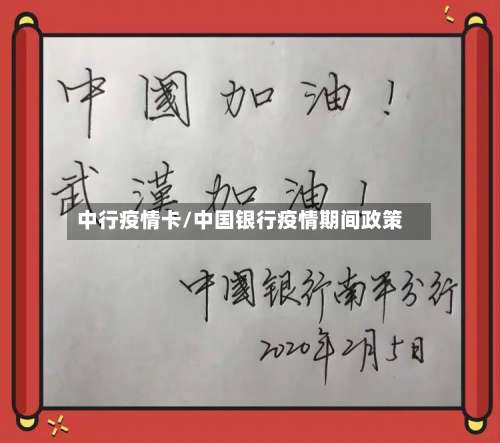 中國加油！
武漢加油！
中行疫情卡/中国银行疫情期间政策
中國银行南平分行
2020年2月5日